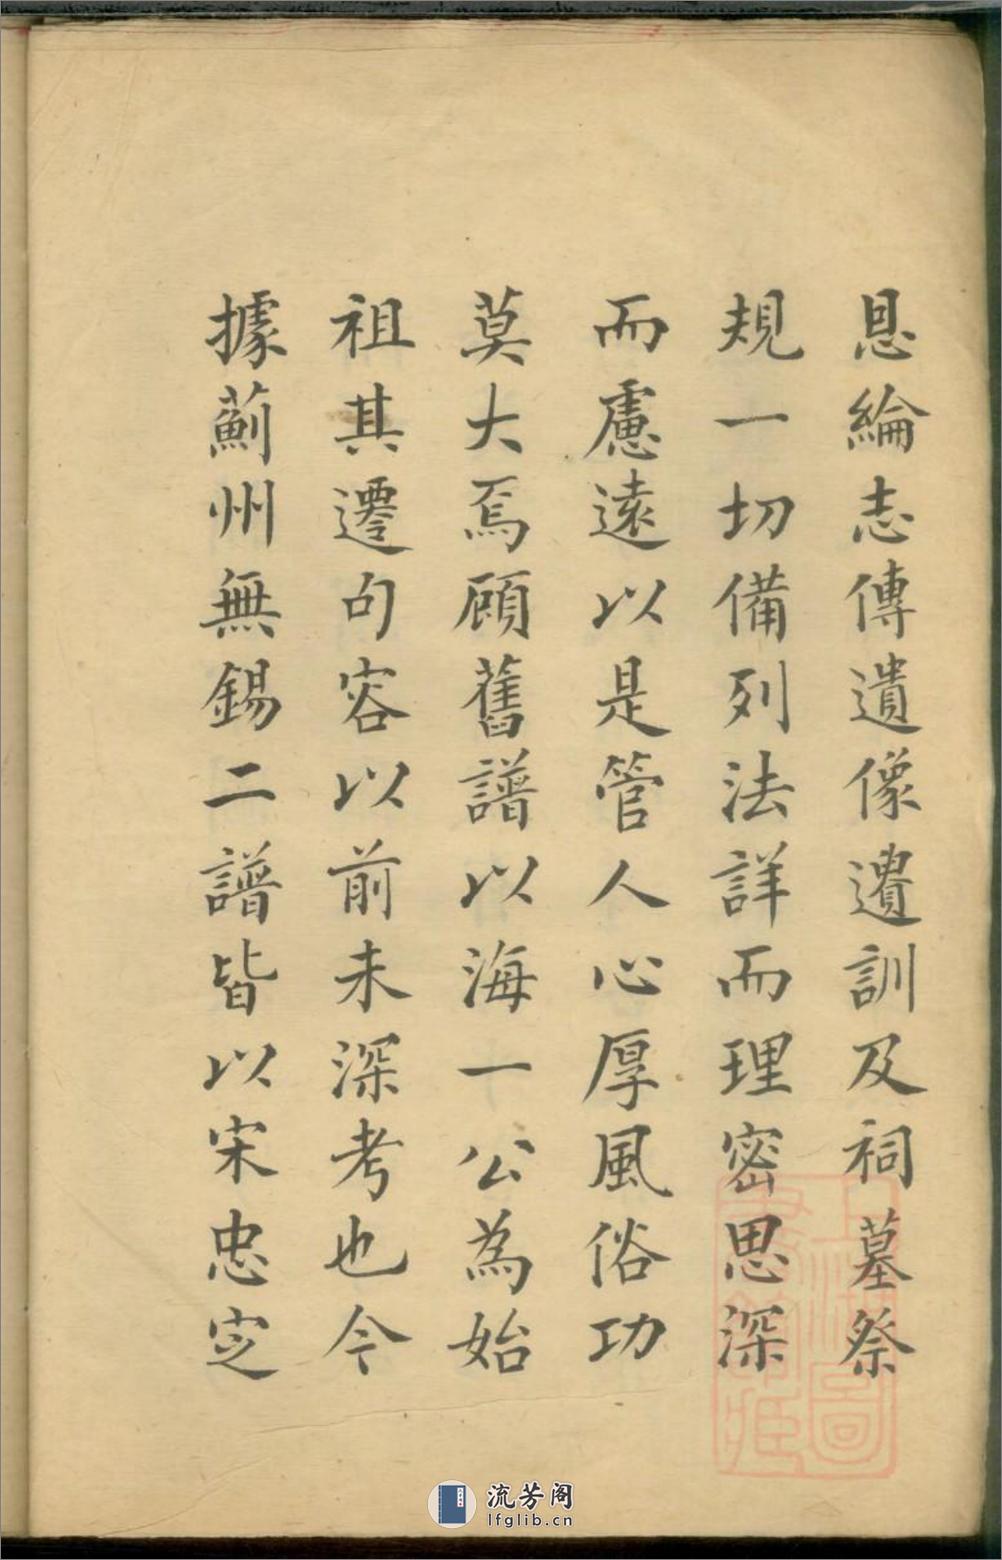 恩綸志傳遺像遺訓及祠墓祭
規一切備列法詳而理密思深
而慮遠以是管人心厚風俗功
莫大焉顧舊譜以海一公為始
祖其遷句容以前未深考也今
據薊州無錫二譜皆以宋忠定
上海圖
書館藏
流芳阁
lfglib.cn